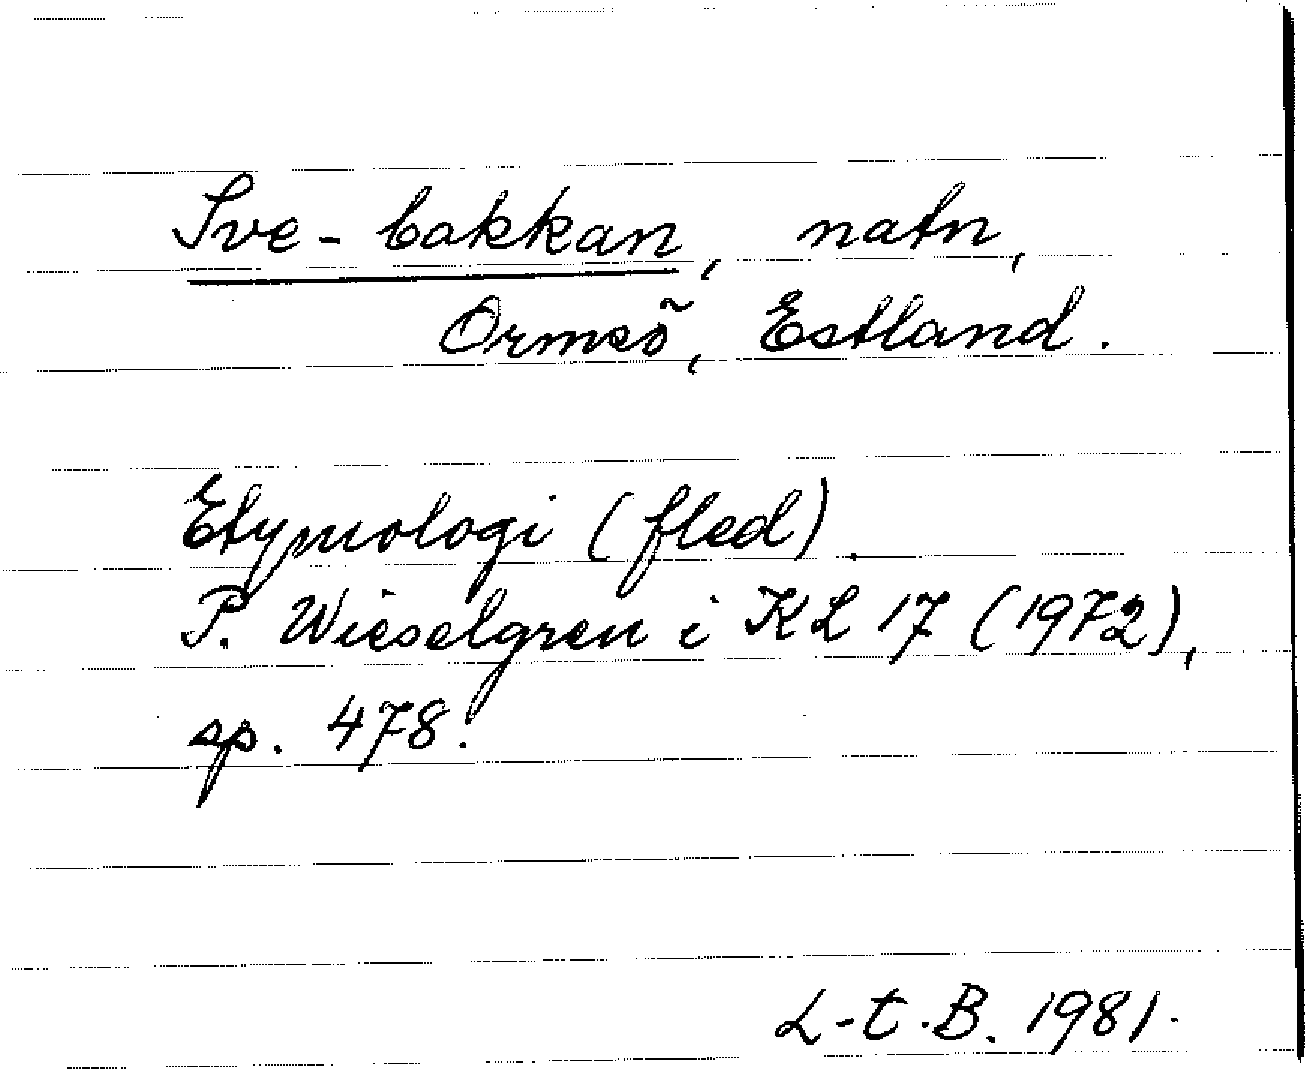 Sve-bakkan, natn,
Ormsö, Estland.
Etymologi (fled).
P. Wieselgren i KL 17 (1972),
sp. 478.
L-t.B. 1981.